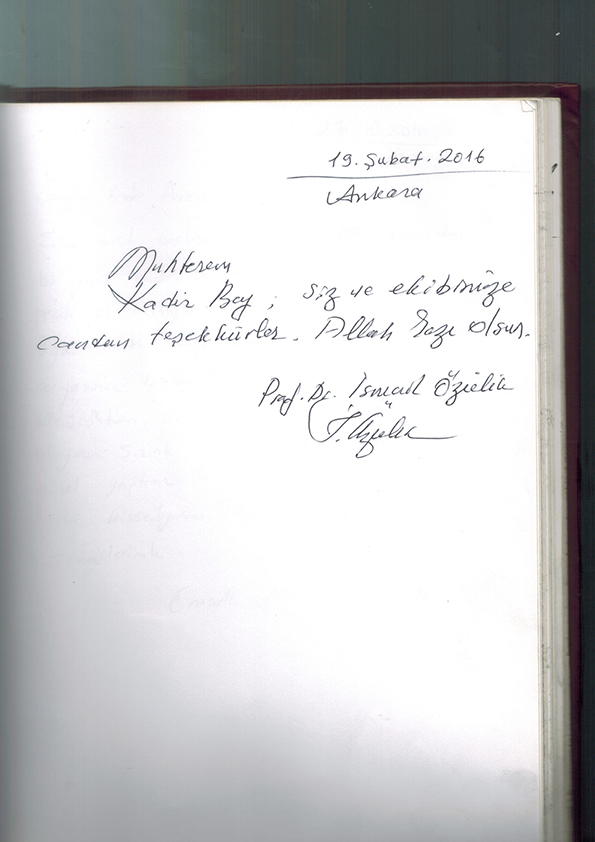 19. Şubat. 2016
Ankara
Muhterem
Kadir Bey; siz ve ekibinize
candan teşekkürler. Allah Razı olsun.
Prof. Dr. İsmail Özçelik